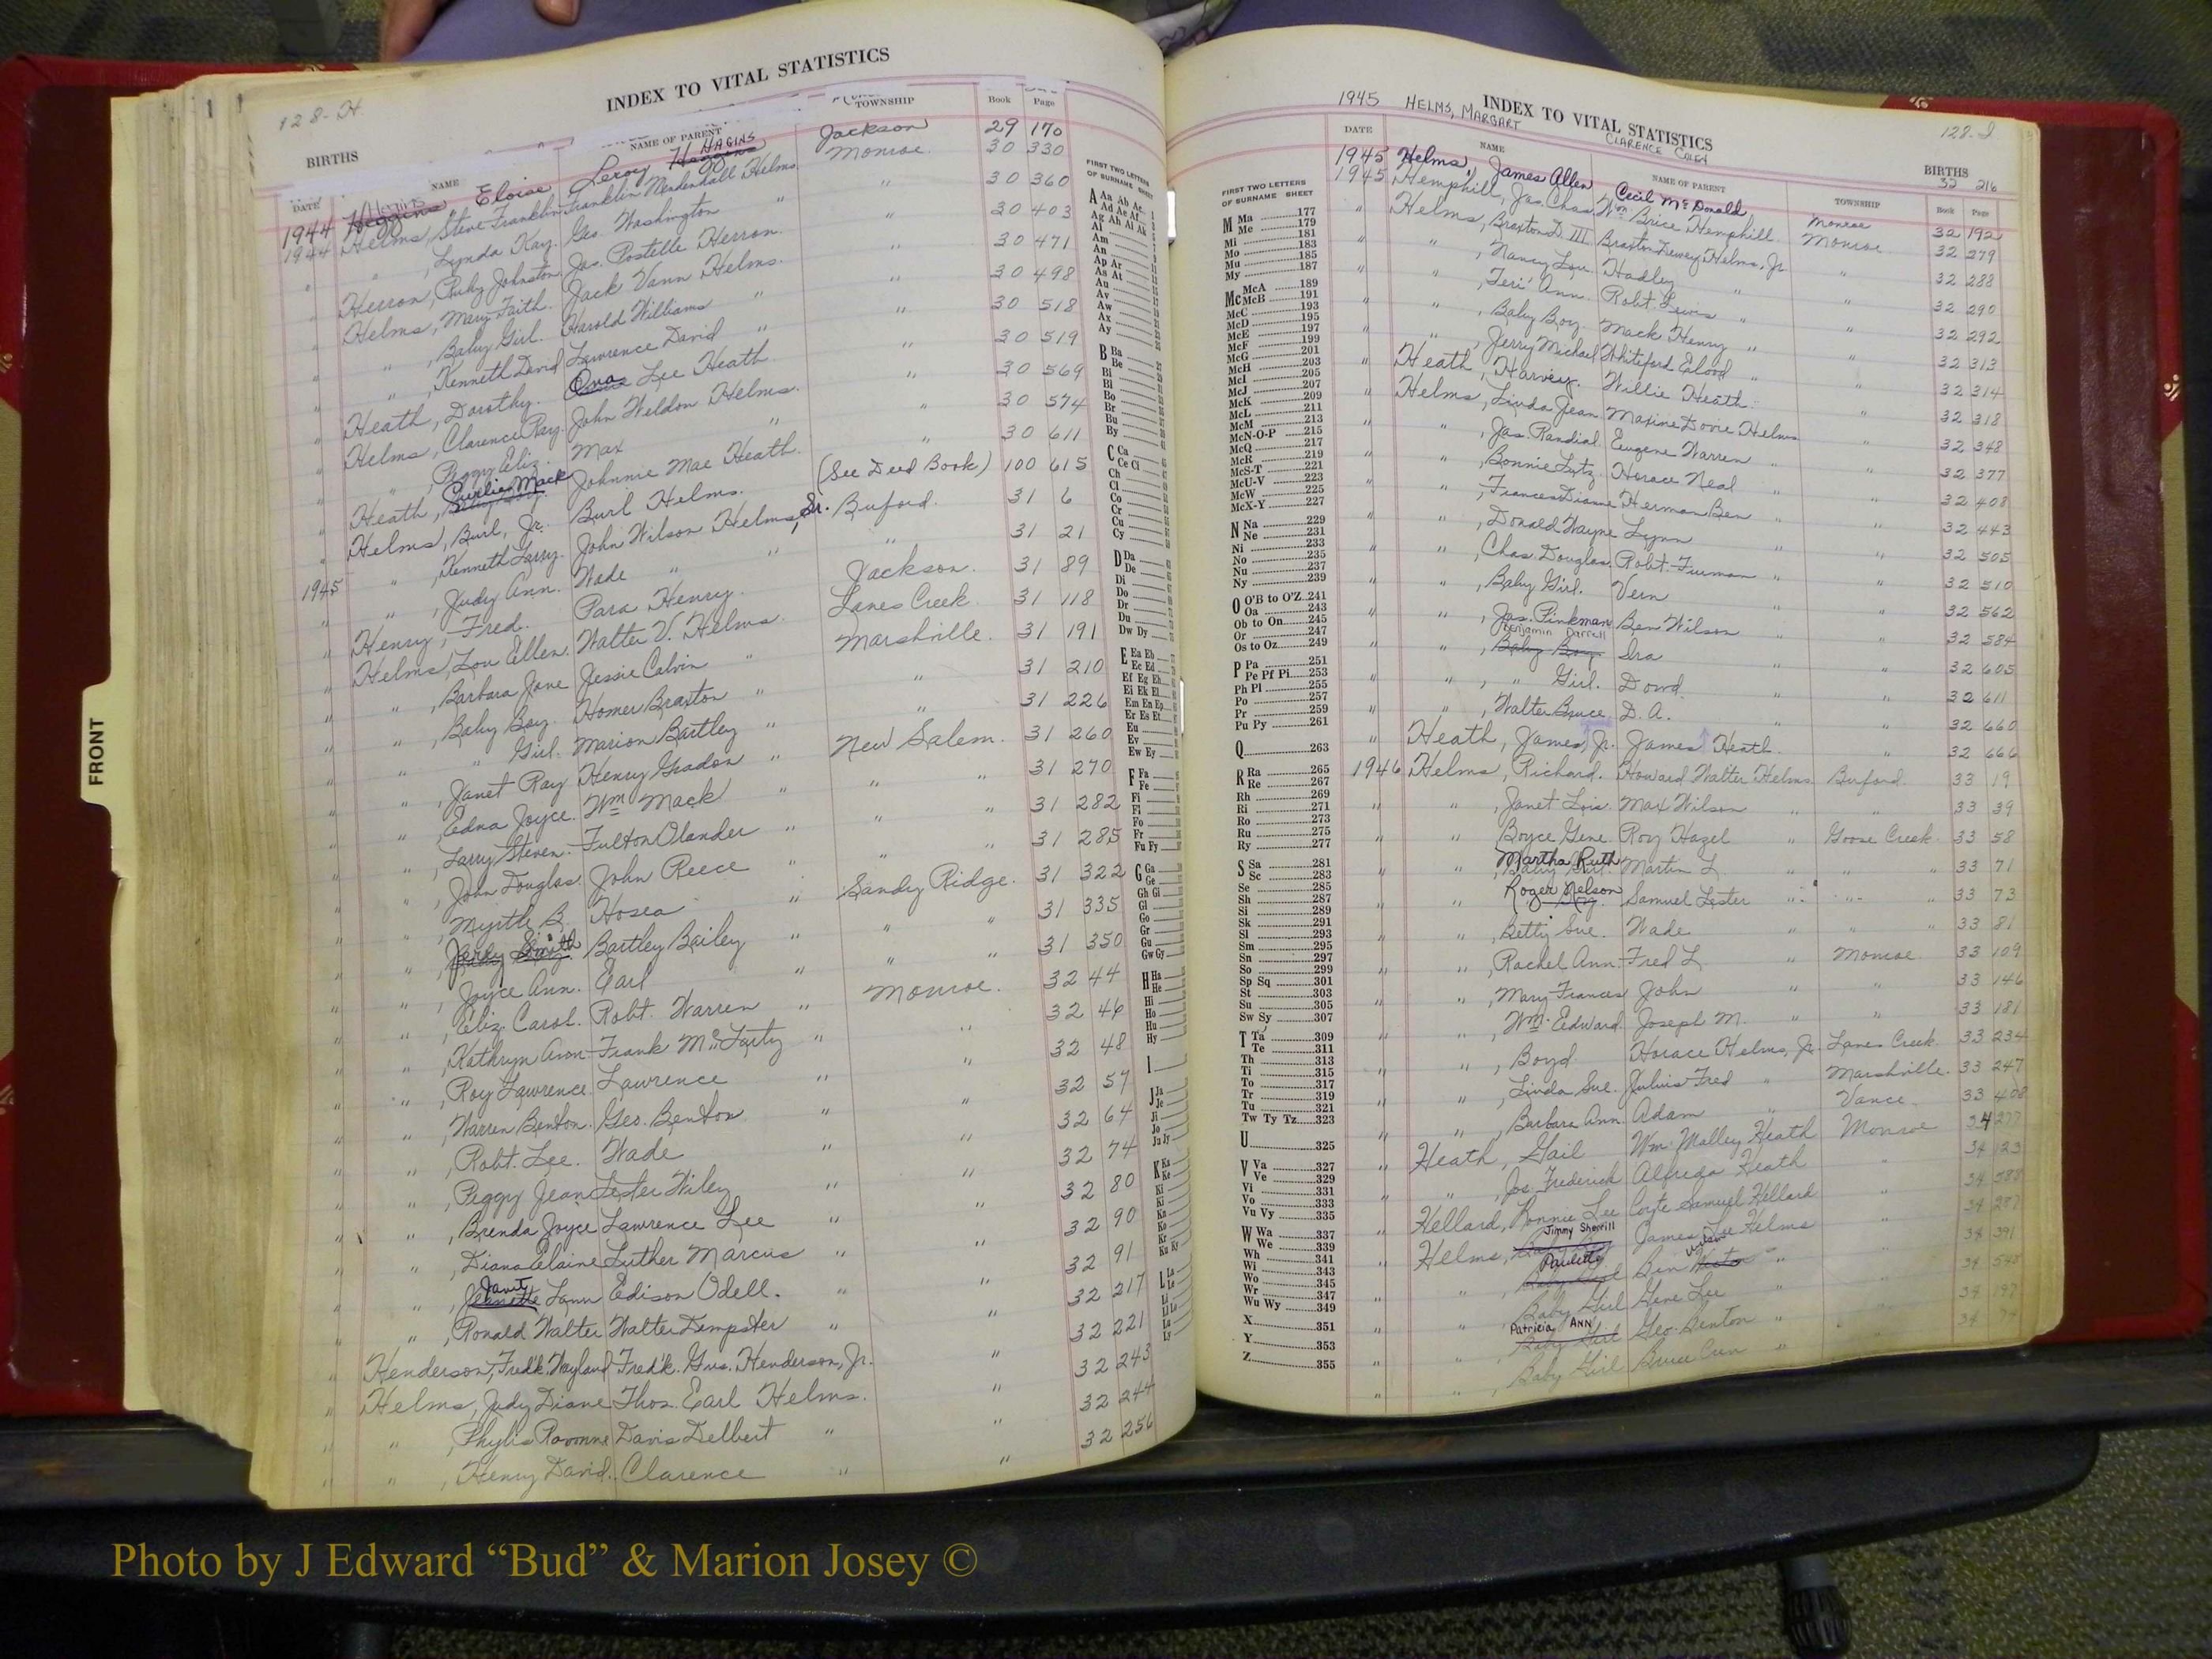 128-H
INDEX TO VITAL STATISTICS
BIRTHS
DATE NAME NAME OF PARENT TOWNSHIP Book Page
1944 Heggins Hegins Eloise Leroy Heggins HAGINS Jackson 29 170
1944 Helms, Steve Franklin Franklin Mendenhall Helms Monroe 30 330
" " , Lynda Kay. Geo. Washington " " 30 360
" Herron, Ruby Johnston Jas. Postelle Herron. " 30 403
" Helms, Mary Faith. Jack Vann Helms. " 30 471
" " , Baby Girl. Harold Williams " " 30 498
" " , Kenneth David Lawrence David " " 30 518
" Heath, Dorothy. Lee Heath " 30 519
" Helms, Clarence Ray. John Weldon Helms. " 30 569
" " , Peggy Eliz. Max " " 30 574
" Heath, Curlie Mack Johnnie Mae Heath. " 30 611
" Helms, Burl, Jr. Burl Helms. (See Deed Book) 100 615
" " , Kenneth Larry. John Wilson Helms, Sr. Buford. 31 6
1945 " , Judy Ann. Wade " " 31 21
" Henry, Fred. Para Henry. Jackson. 31 89
" Helms, Lou Ellen. Walter V. Helms. Lanes Creek. 31 118
" " , Barbara Jane Jessie Calvin " Marshville. 31 191
" " , Baby Boy. Homer Braxton " " 31 210
" " " Girl. Marion Bartley " " 31 226
" " , Janet Ray Henry Gradon " New Salem. 31 260
" " , Edna Joyce. Wm Mack " " " 31 270
" " , Larry Steven. Fulton Olander " " " 31 282
" " , John Douglas John Reece " " " 31 285
" " , Myrtle B. Hosea " Sandy Ridge. 31 322
" " , Smith Bartley Bailey " " " 31 335
" " , Joyce Ann. Earl " " " 31 350
" " , Eliz. Carol. Robt. Warren " Monroe. 32 44
" " , Kathryn Ann Frank McLarty " " 32 46
" " , Roy Lawrence. Lawrence " " 32 48
" " , Warren Benton. Geo. Benton " " 32 57
" " , Robt. Lee. Wade " " 32 64
" " , Peggy Jean Lester Wiley " " 32 74
" " , Brenda Joyce Lawrence Lee " " 32 80
" " , Diana Elaine Luther Marcus " " 32 90
" " , Jeanette Lynn Edison Odell. " " 32 91
" " , Ronald Walter Walter Dempster " " 32 217
" Henderson, Fred'k. Wayland Fred'k. Gus. Henderson, Jr. " 32 221
" Helms, Judy Diane Thos. Earl Helms. " 32 243
" " , Phylis Ravonne Davis Delbert " " 32 244
" " , Henry David. Clarence " " 32 256
FIRST TWO LETTERS
OF SURNAME SHEET
A Aa Ab Ac
Ad Ae Af
Ag Ah Ai Ak
Al
Am
An
Ap Ar
As At
Au
Av
Aw
Ax
Ay
B Ba
Be
Bi
Bl
Bo
Br
Bu
By
C Ca
Ce Ci
Ch
Cl
Co
Cr
Cu
Cy
D Da
De
Di
Do
Dr
Du
Dw Dy
E Ea Eb
Ec Ed
Ef Eg Eh
Ei Ek El
Em En Ep
Er Es Et
Eu
Ev
Ew Ey
F Fa
Fe
Fi
Fl
Fo
Fr
Fu Fy
G Ga
Ge
Gh Gi
Gl
Go
Gr
Gu
Gw Gy
H Ha
He
Hi
Ho
Hu
Hy
I
J Ja
Je
Ji
Jo
Ju Jy
K Ka
Ke
Ki
Kl
Kn
Ko
Kr
Ku Ky
L La
Le
Li
Lo
Lu
Ly
FRONT
1945 HELMS, MARGART CLARENCE COLEN 32 216
INDEX TO VITAL STATISTICS
128-I
BIRTHS
DATE NAME NAME OF PARENT TOWNSHIP Book Page
1945 Helms, James Allen Cecil McDonald Monroe 32 192
1945 Hemphill, Jas. Chas. Wm Brice Hemphill. Monroe 32 279
" Helms, Braxton D. III Braxton Dewey Helms, Jr. " 32 288
" " , Nancy Lou. Hadley " " 32 290
" " , Teri Ann. Robt. Lewis " " 32 292
" " , Baby Boy. Mack Henry " " 32 313
" " , Jerry Michael Whiteford Elood " " 32 314
" Heath, Harvey. Willie Heath. " 32 318
" Helms, Linda Jean Maxine Dovie Helms " 32 348
" " , Jas. Randial. Eugene Warren " " 32 377
" " , Bonnie Lutz. Horace Neal " " 32 408
" " , Frances Diane Herman Ben " " 32 443
" " , Donald Wayne Lynn " " 32 505
" " , Chas. Douglas. Robt. Furman " " 32 510
" " , Baby Girl. Vern " " 32 562
" " , Jas. Pinkman Ben Wilson " " 32 584
" " , Baby Boy Benjamin Darrell Ira " " 32 605
" " , " Girl. Dowd. " " 32 611
" " , Walter Bruce D. A. " " 32 660
" Heath, James, Jr. James Heath. " 32 666
1946 Helms, Richard. Howard Walter Helms. Buford. 33 19
" " , Janet Lois. Max Wilson " " 33 39
" " , Boyce Gene. Roy Hazel " Goose Creek. 33 58
" " , Baby Girl. Martha Ruth Martin L. " " " 33 71
" " , Boy. Roger Nelson Samuel Lester " " " 33 73
" " , Betty Sue. Wade " " " 33 81
" " , Rachel Ann. Fred L. " Monroe 33 109
" " , Mary Frances John " " 33 146
" " , Wm. Edward. Joseph M. " " 33 181
" " , Boyd Horace Helms, Jr. Lanes Creek. 33 234
" " , Linda Sue. Julius Fred " Marshville. 33 247
" " , Barbara Ann. Adam " Vance. 33 408
" Heath, Gail Wm. Malley Heath Monroe 34
" " , Jos. Frederick Alfreda Heath " 34 123
" Hellard, Ronnie Lee Coyte Samuel Hellard " 34
" Helms, Jimmy Sherrill James Lee Helms " 34
" " , Baby Girl Paulette Ben " " 34 391
" " , Baby Girl Gene Lee " " 34
" " , Baby Girl Patricia ANN Geo. Benton " " 34
" " , Baby Girl Bruce " 34
FIRST TWO LETTERS
OF SURNAME SHEET
M Ma 177
Me 179
Mi 181
Mo 183
Mu 185
My 187
Mc McA 189
McB 191
McC 193
McD 195
McE 197
McF 199
McG 201
McH 203
McI 205
McJ 207
McK 209
McL 211
McM 213
McN-O-P 215
McQ 217
McR 219
McS-T 221
McU-V 223
McW 225
McX-Y 227
N Na 229
Ne 231
Ni 233
No 235
Nu 237
Ny 239
O O'B to O'Z 241
Oa 243
Ob to On 245
Or 247
Os to Oz 249
P Pa 251
Pe Pf Pi 253
Ph Pl 255
Po 257
Pr 259
Pu Py 261
Q 263
R Ra 265
Re 267
Rh 269
Ri 271
Ro 273
Ru 275
Ry 277
S Sa 281
Sc 283
Se 285
Sh 287
Si 289
Sk 291
Sl 293
Sm 295
Sn 297
So 299
Sp Sq 301
St 303
Su 305
Sw Sy 307
T Ta 309
Te 311
Th 313
Ti 315
To 317
Tr 319
Tu 321
Tw Ty Tz 323
U 325
V Va 327
Ve 329
Vi 331
Vo 333
Vu Vy 335
W Wa 337
We 339
Wh 341
Wi 343
Wo 345
Wr 347
Wu Wy 349
X 351
Y 353
Z 355
Photo by J Edward “Bud” & Marion Josey ©